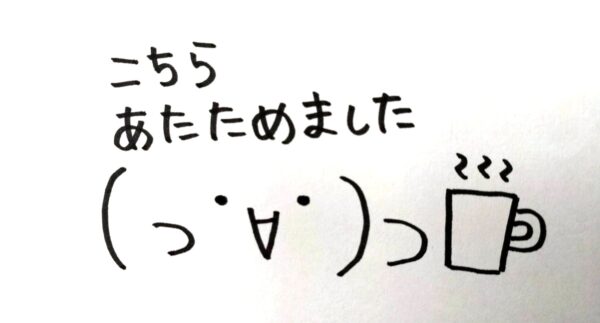 こちら
あたためました
(っ˙∀˙)っ